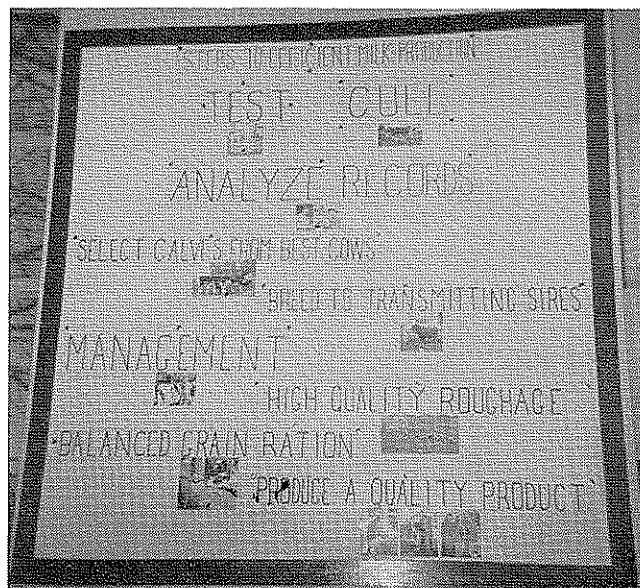 STEPS TO EFFICIENT MILK PRODUCTION
TEST CULL
ANALYZE RECORDS
SELECT CALVES FROM BEST COWS
BREED TO TRANSMITTING SIRES
MANAGEMENT
HIGH QUALITY ROUGHAGE
BALANCED GRAIN RATION
PRODUCE A QUALITY PRODUCT